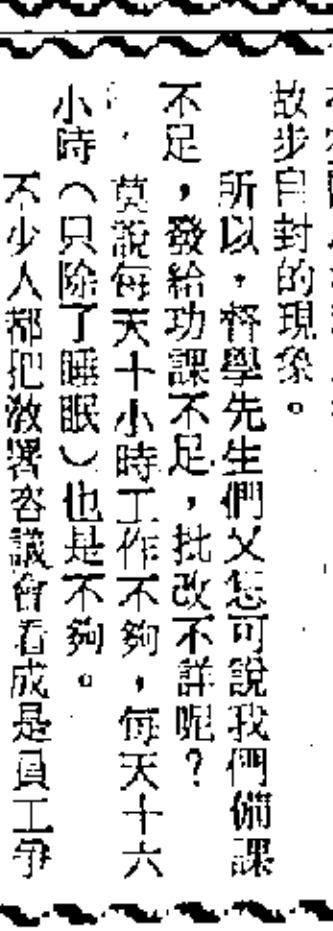 故步自封的現象。
所以，督學先生們又怎可說我們備課
不足，發給功課不足，批改不詳呢？
，莫說每天十小時工作不夠，每天十六
小時（只除了睡眠）也是不夠。
不少人都把教署咨議會看成是員工爭